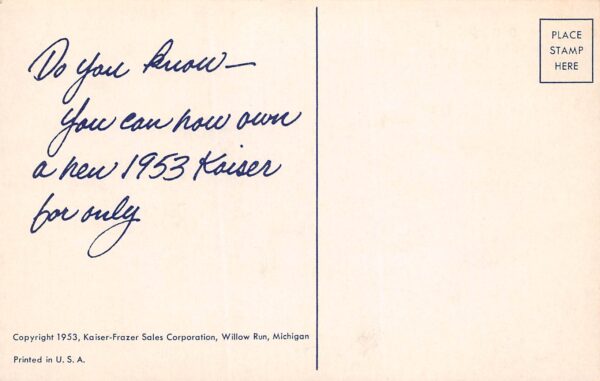 Do you know—
You can now own
a new 1953 Kaiser
for only
PLACE
STAMP
HERE
Copyright 1953, Kaiser-Frazer Sales Corporation, Willow Run, Michigan
Printed in U. S. A.